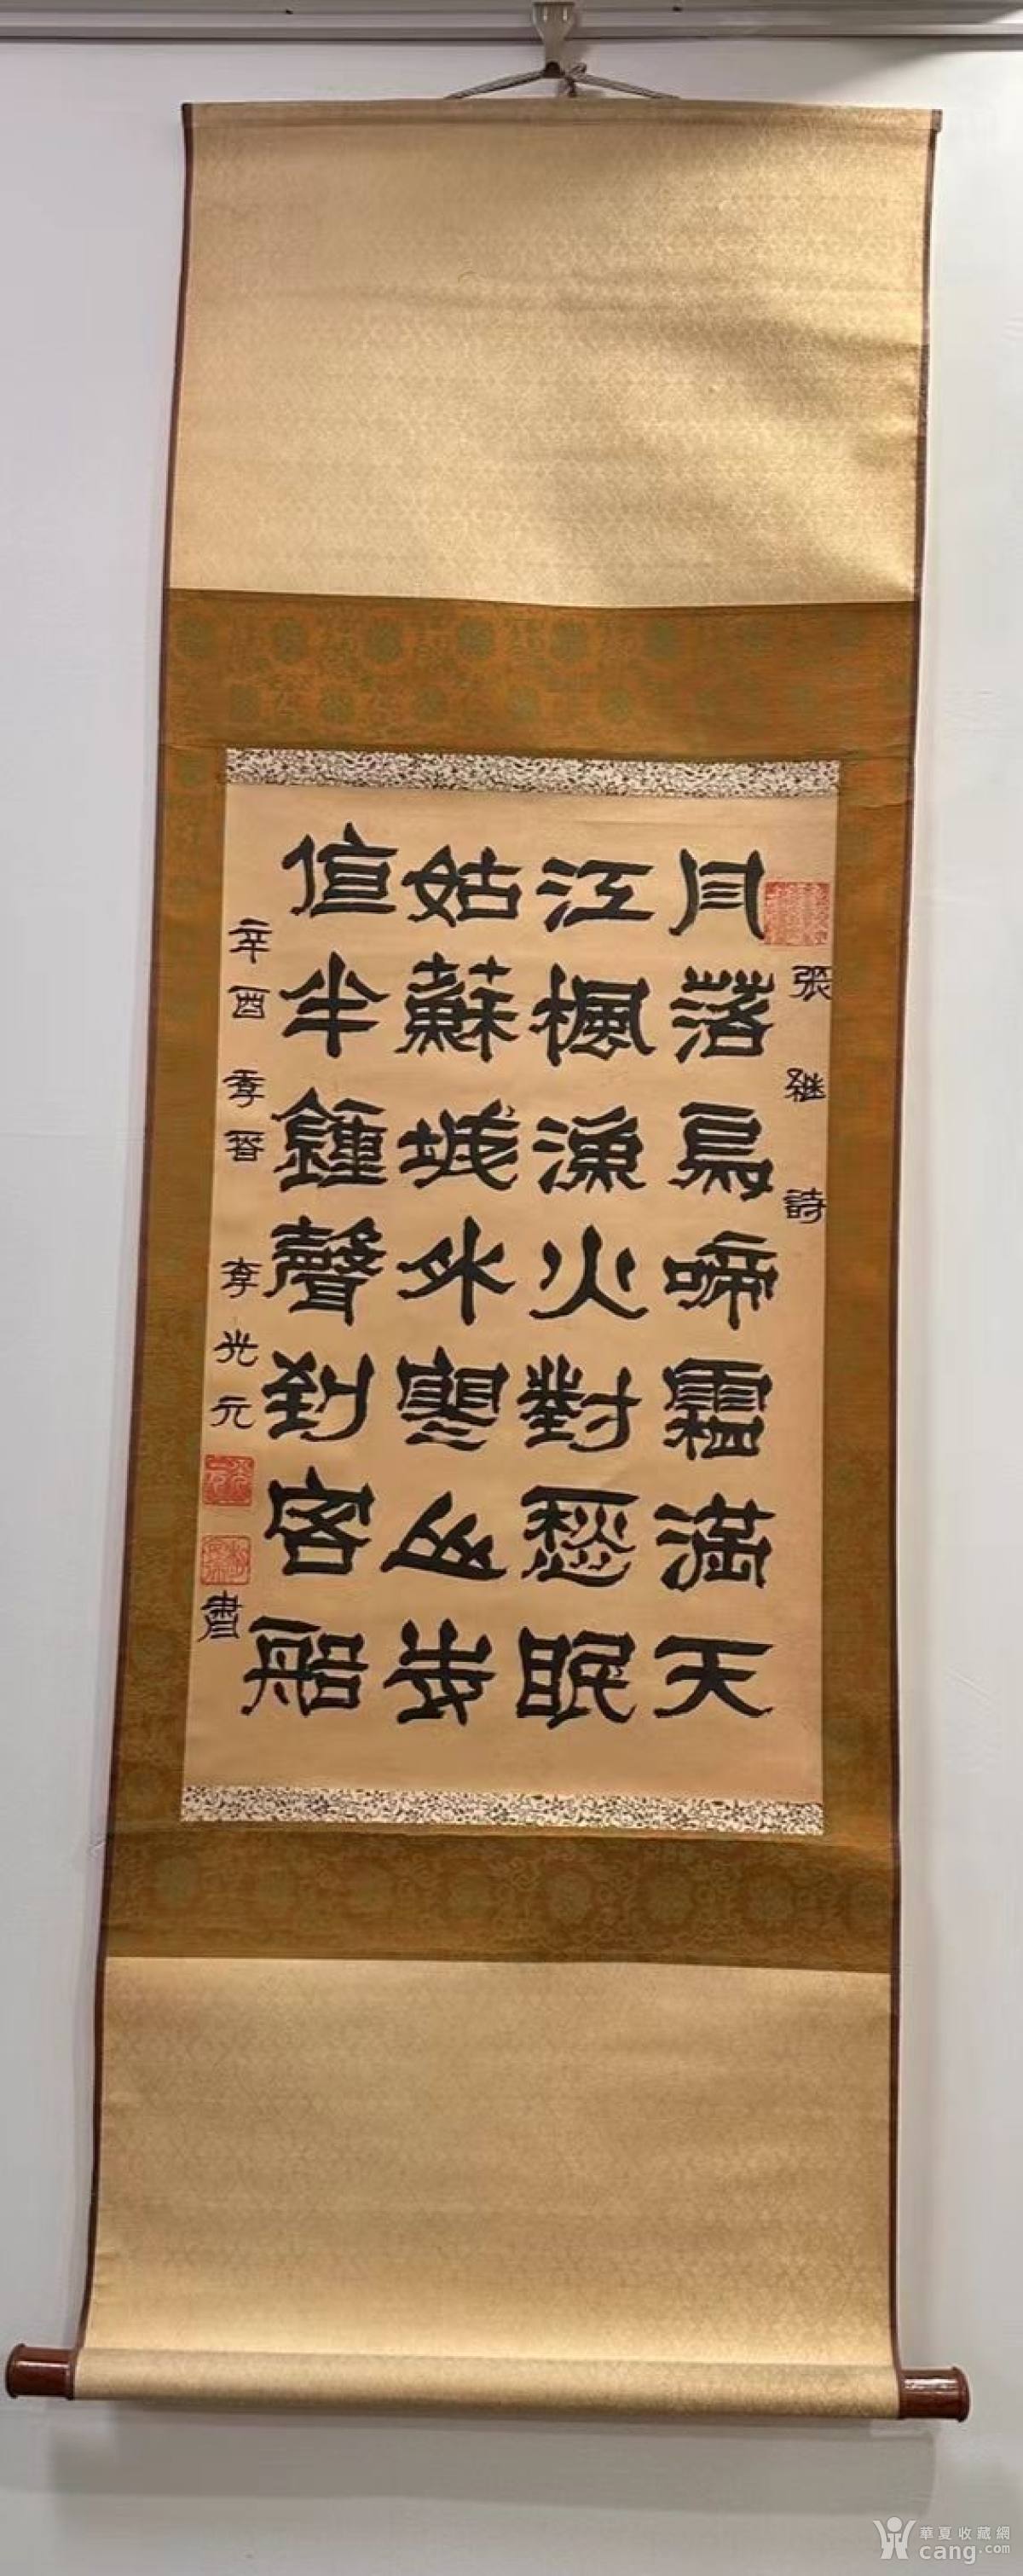 張継詩
月落烏啼霜滿天
江楓漁火對愁眠
姑蘇城外寒山寺
亱半鐘聲到客船
辛酉季春 李光元 書
華夏收藏網
cang.com